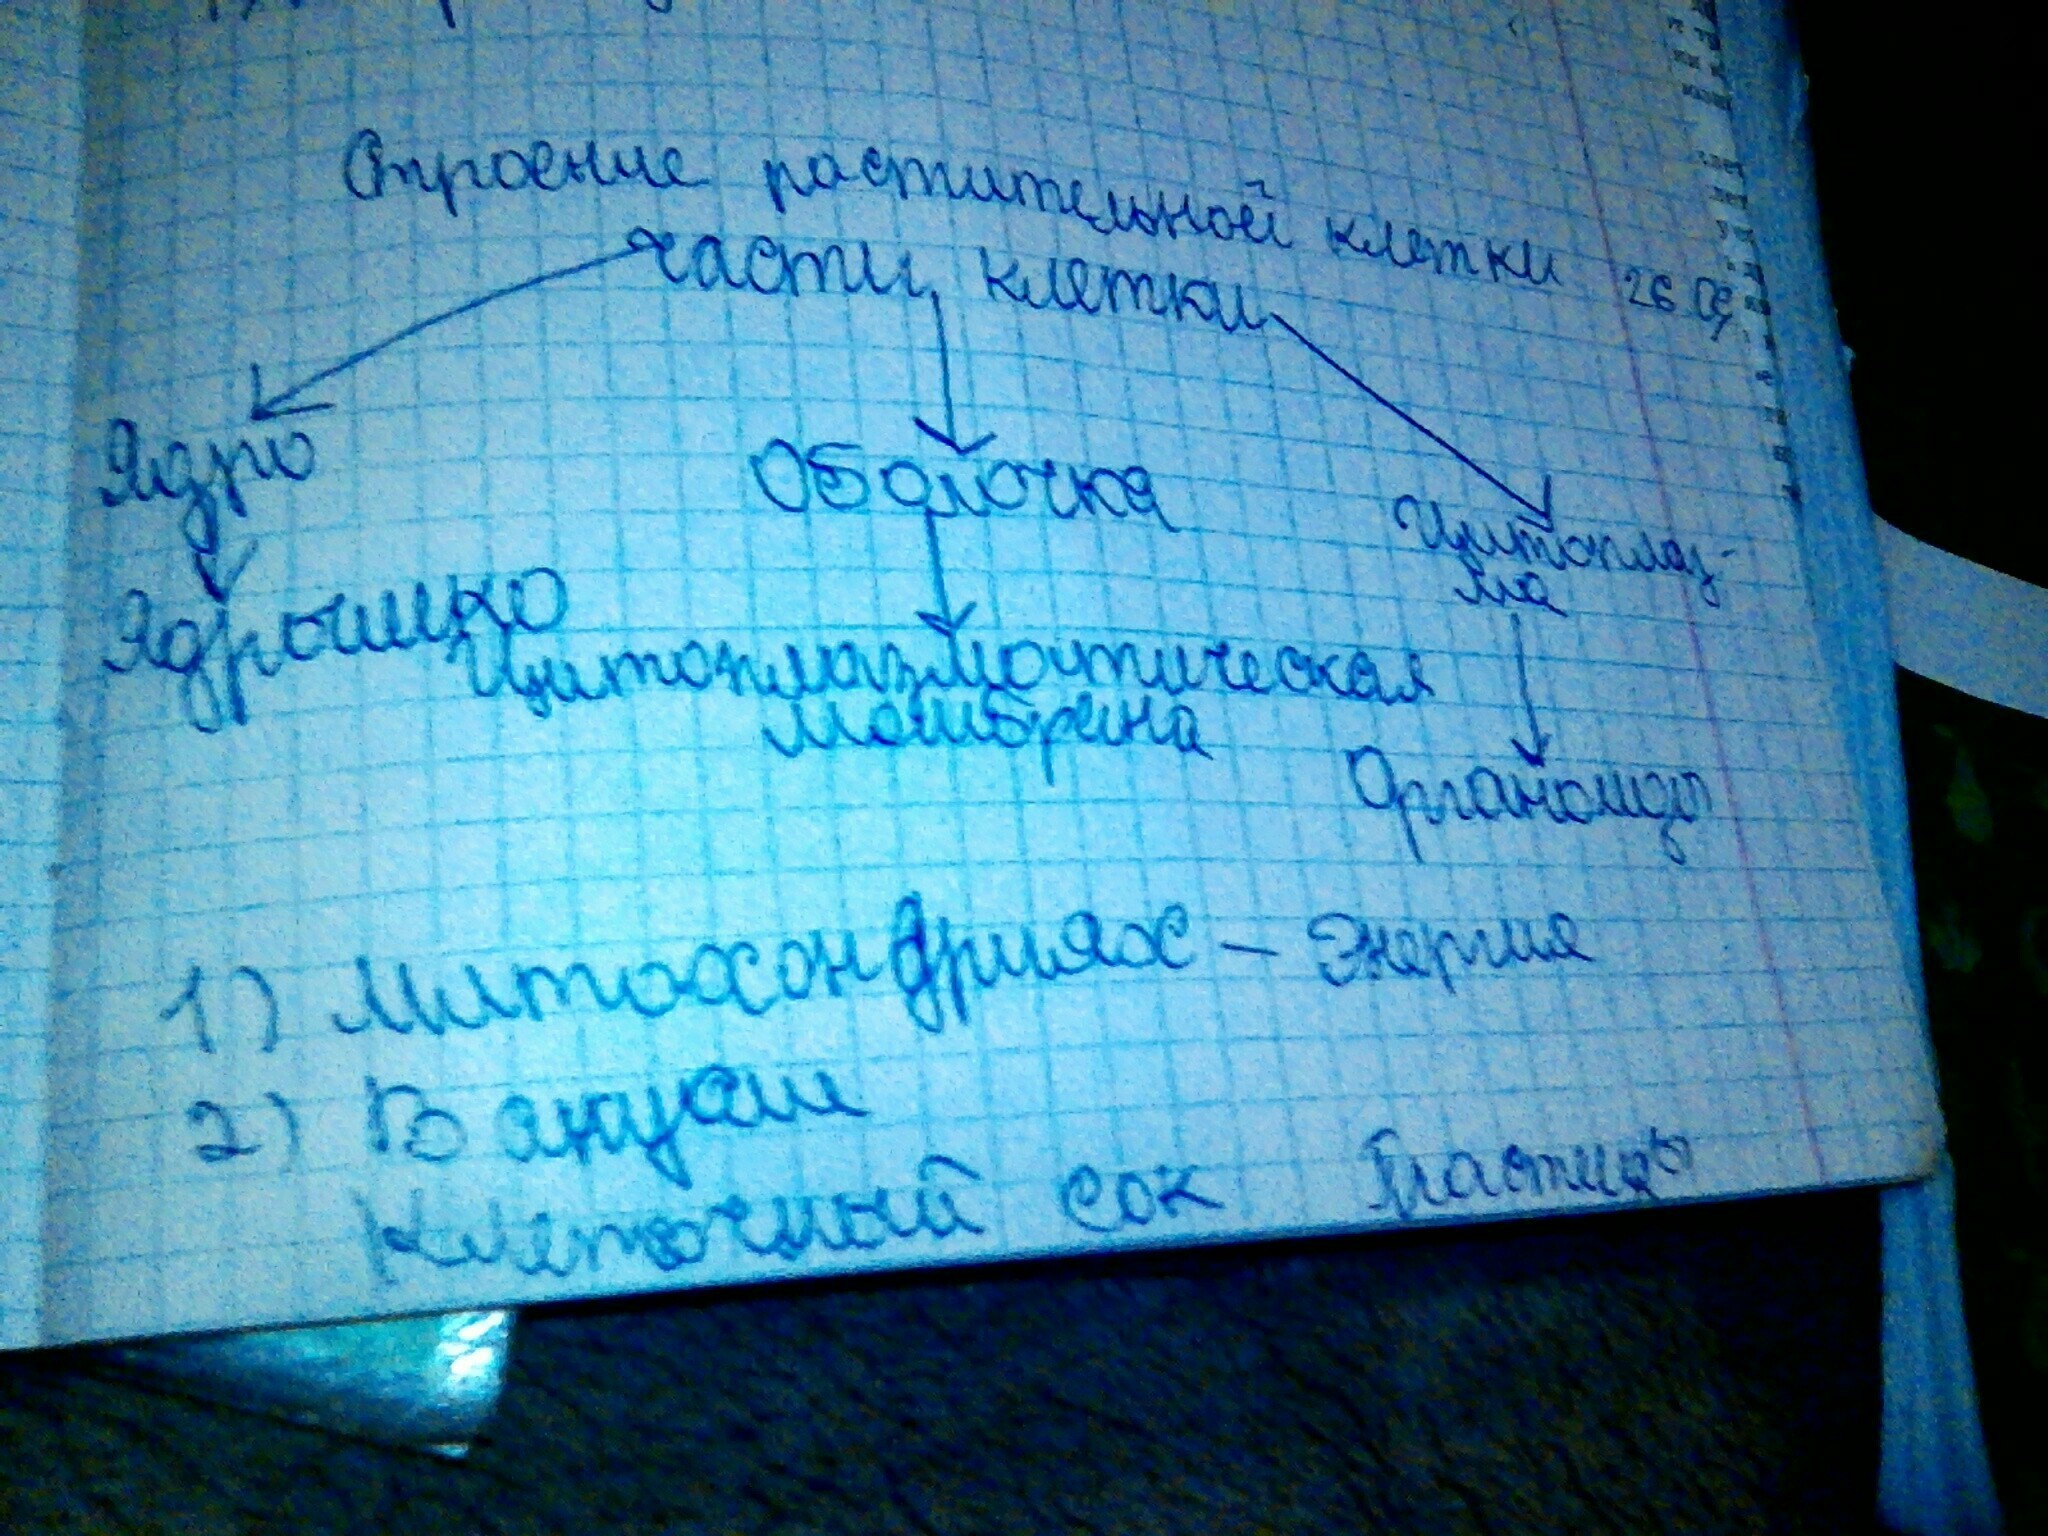 Строение растительной клетки 26.09
части клетки
Ядро Оболочка Цитоплаз-
ма
Ядрошко
Цитоплазмоттическая
мембрана
Органоиды
1) Митохондриях - Энергия
2) Вакуоли
Клеточный сок Пластиды